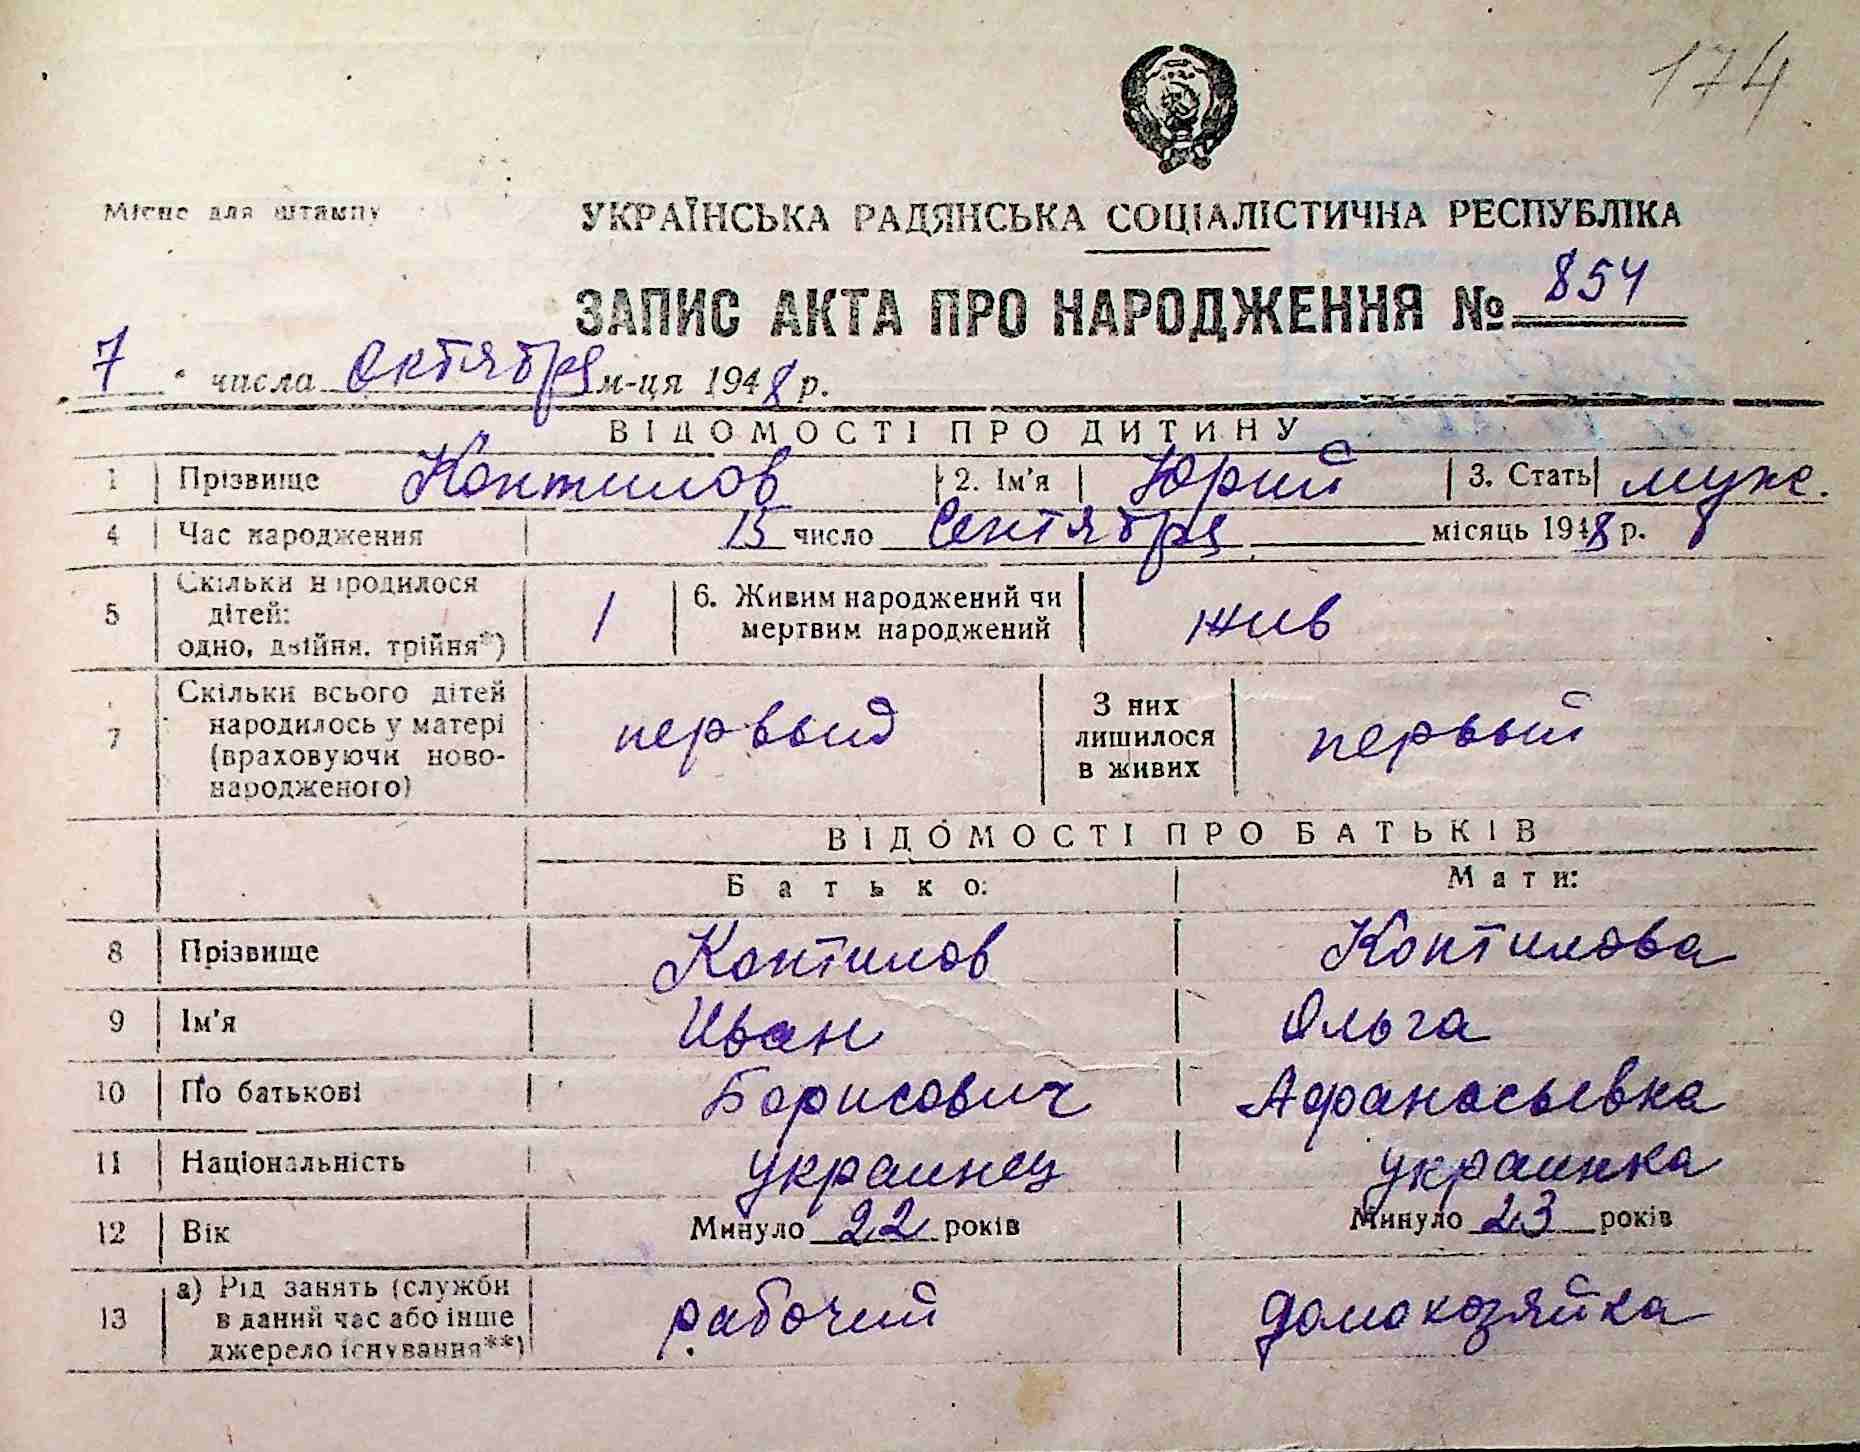 174
Місце для штампу
УКРАЇНСЬКА РАДЯНСЬКА СОЦІАЛІСТИЧНА РЕСПУБЛІКА
ЗАПИС АКТА ПРО НАРОДЖЕННЯ № 854
7 числа октября м-ця 1948 р.
ВІДОМОСТІ ПРО ДИТИНУ
1 Прізвище Коптилов 2. Ім'я Юрий 3. Стать муж.
4 Час народження 15 число Сентября місяць 1948 р.
5 Скільки народилося дітей: одно, двійня, трійня*) 1 6. Живим народжений чи мертвим народжений жив
7 Скільки всього дітей народилось у матері (враховуючи новонародженого) первый З них лишилося в живих первый
ВІДОМОСТІ ПРО БАТЬКІВ
Батько: Мати:
8 Прізвище Коптилов Коптилова
9 Ім'я Иван Ольга
10 По батькові Борисович Афанасьевна
11 Національність украинец украинка
12 Вік Минуло 22 років Минуло 23 років
13 а) Рід занять (служби в даний час або інше джерело існування**) рабочий домохозяйка